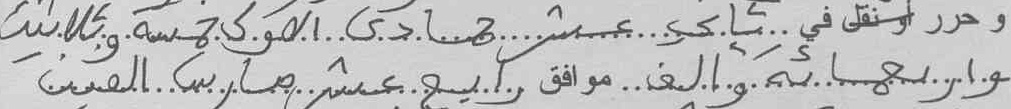 و حرر و نقل في ثاني عشر جمادى الاولى خمسة وثلاثين
واربعمائة والف موافق رابع عشر مارس الفين